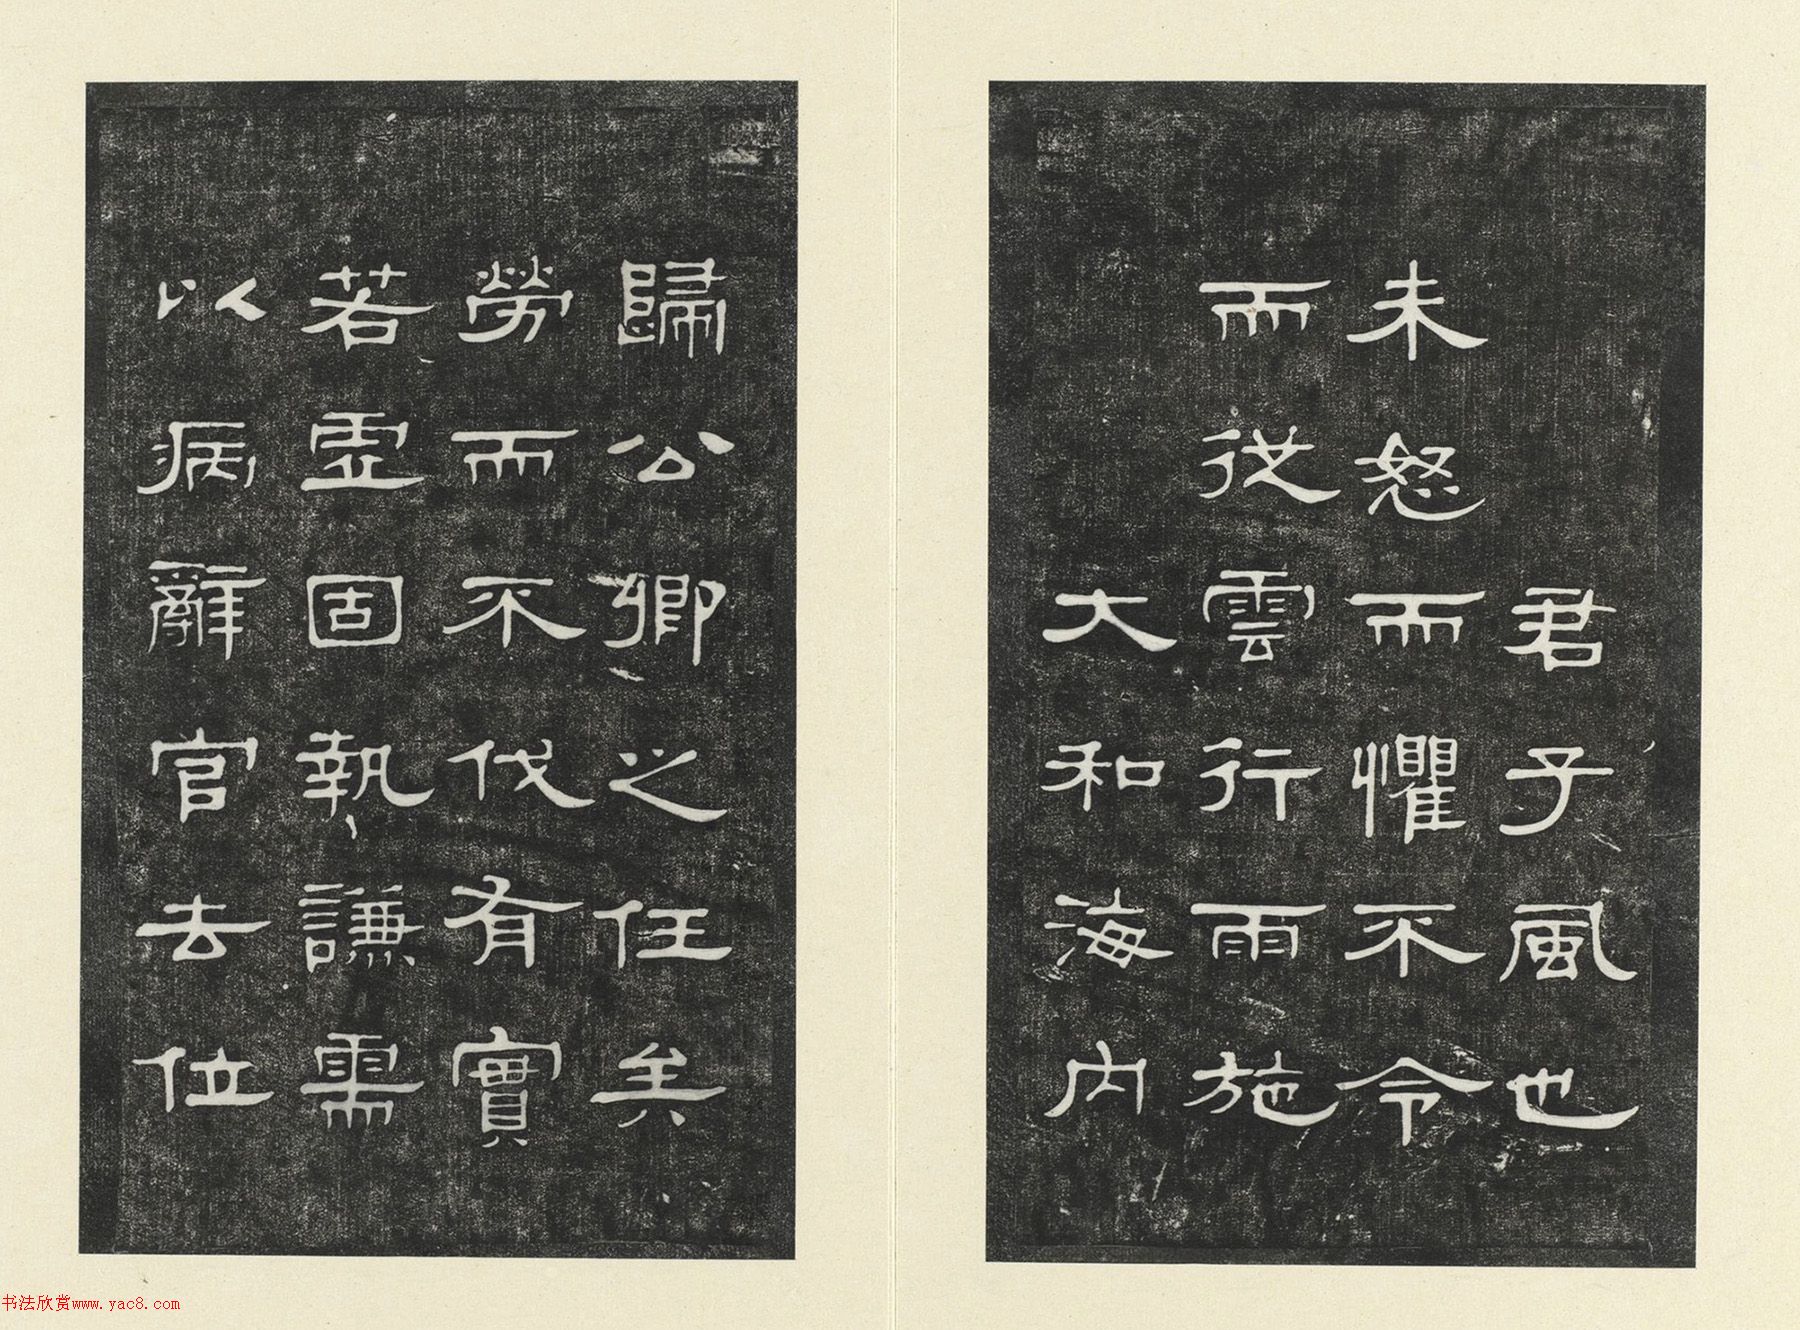 君子風也
未怒而懼不令
而從雲行雨施
大和海内
歸公卿之任矣
勞而不伐有實
若虛固執謙需
以病辭官去位
书法欣赏www.yac8.com